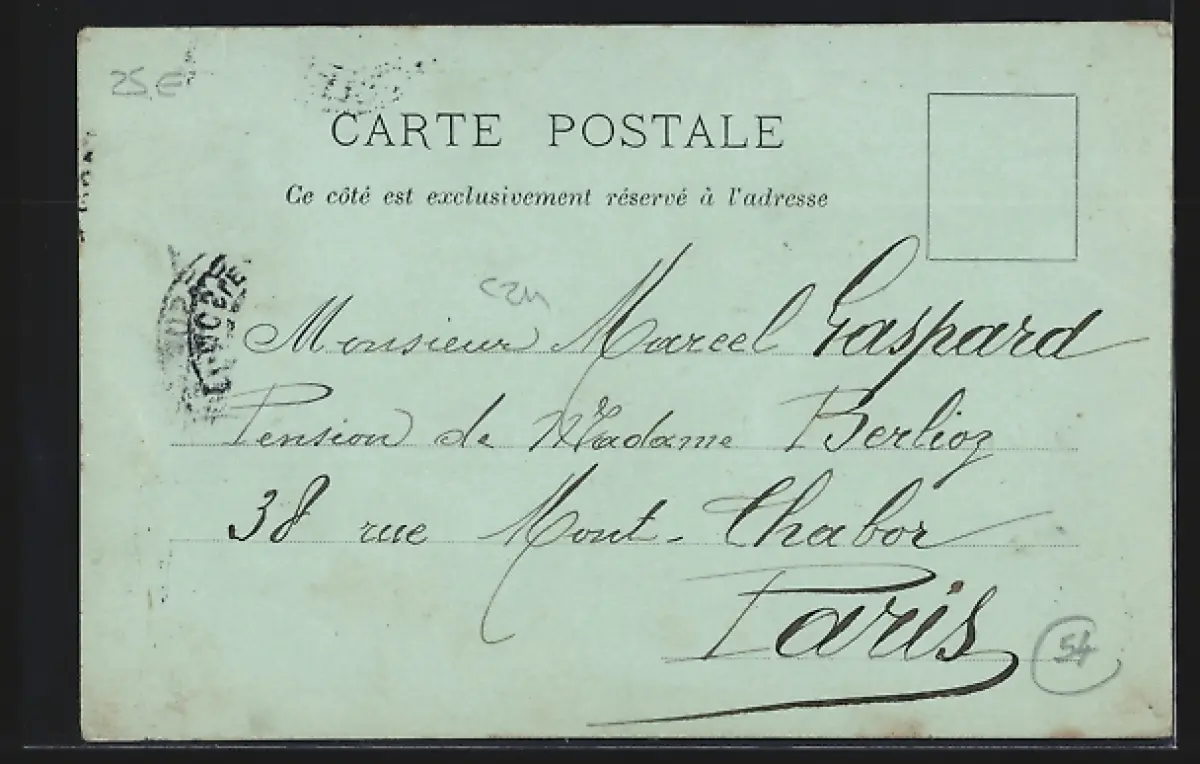 25 €
CARTE POSTALE
Ce côté est exclusivement réservé à l'adresse
Monsieur Marcel Gaspard
Pension de Madame Berlioz
38 rue Mont-Thabor
Paris
54